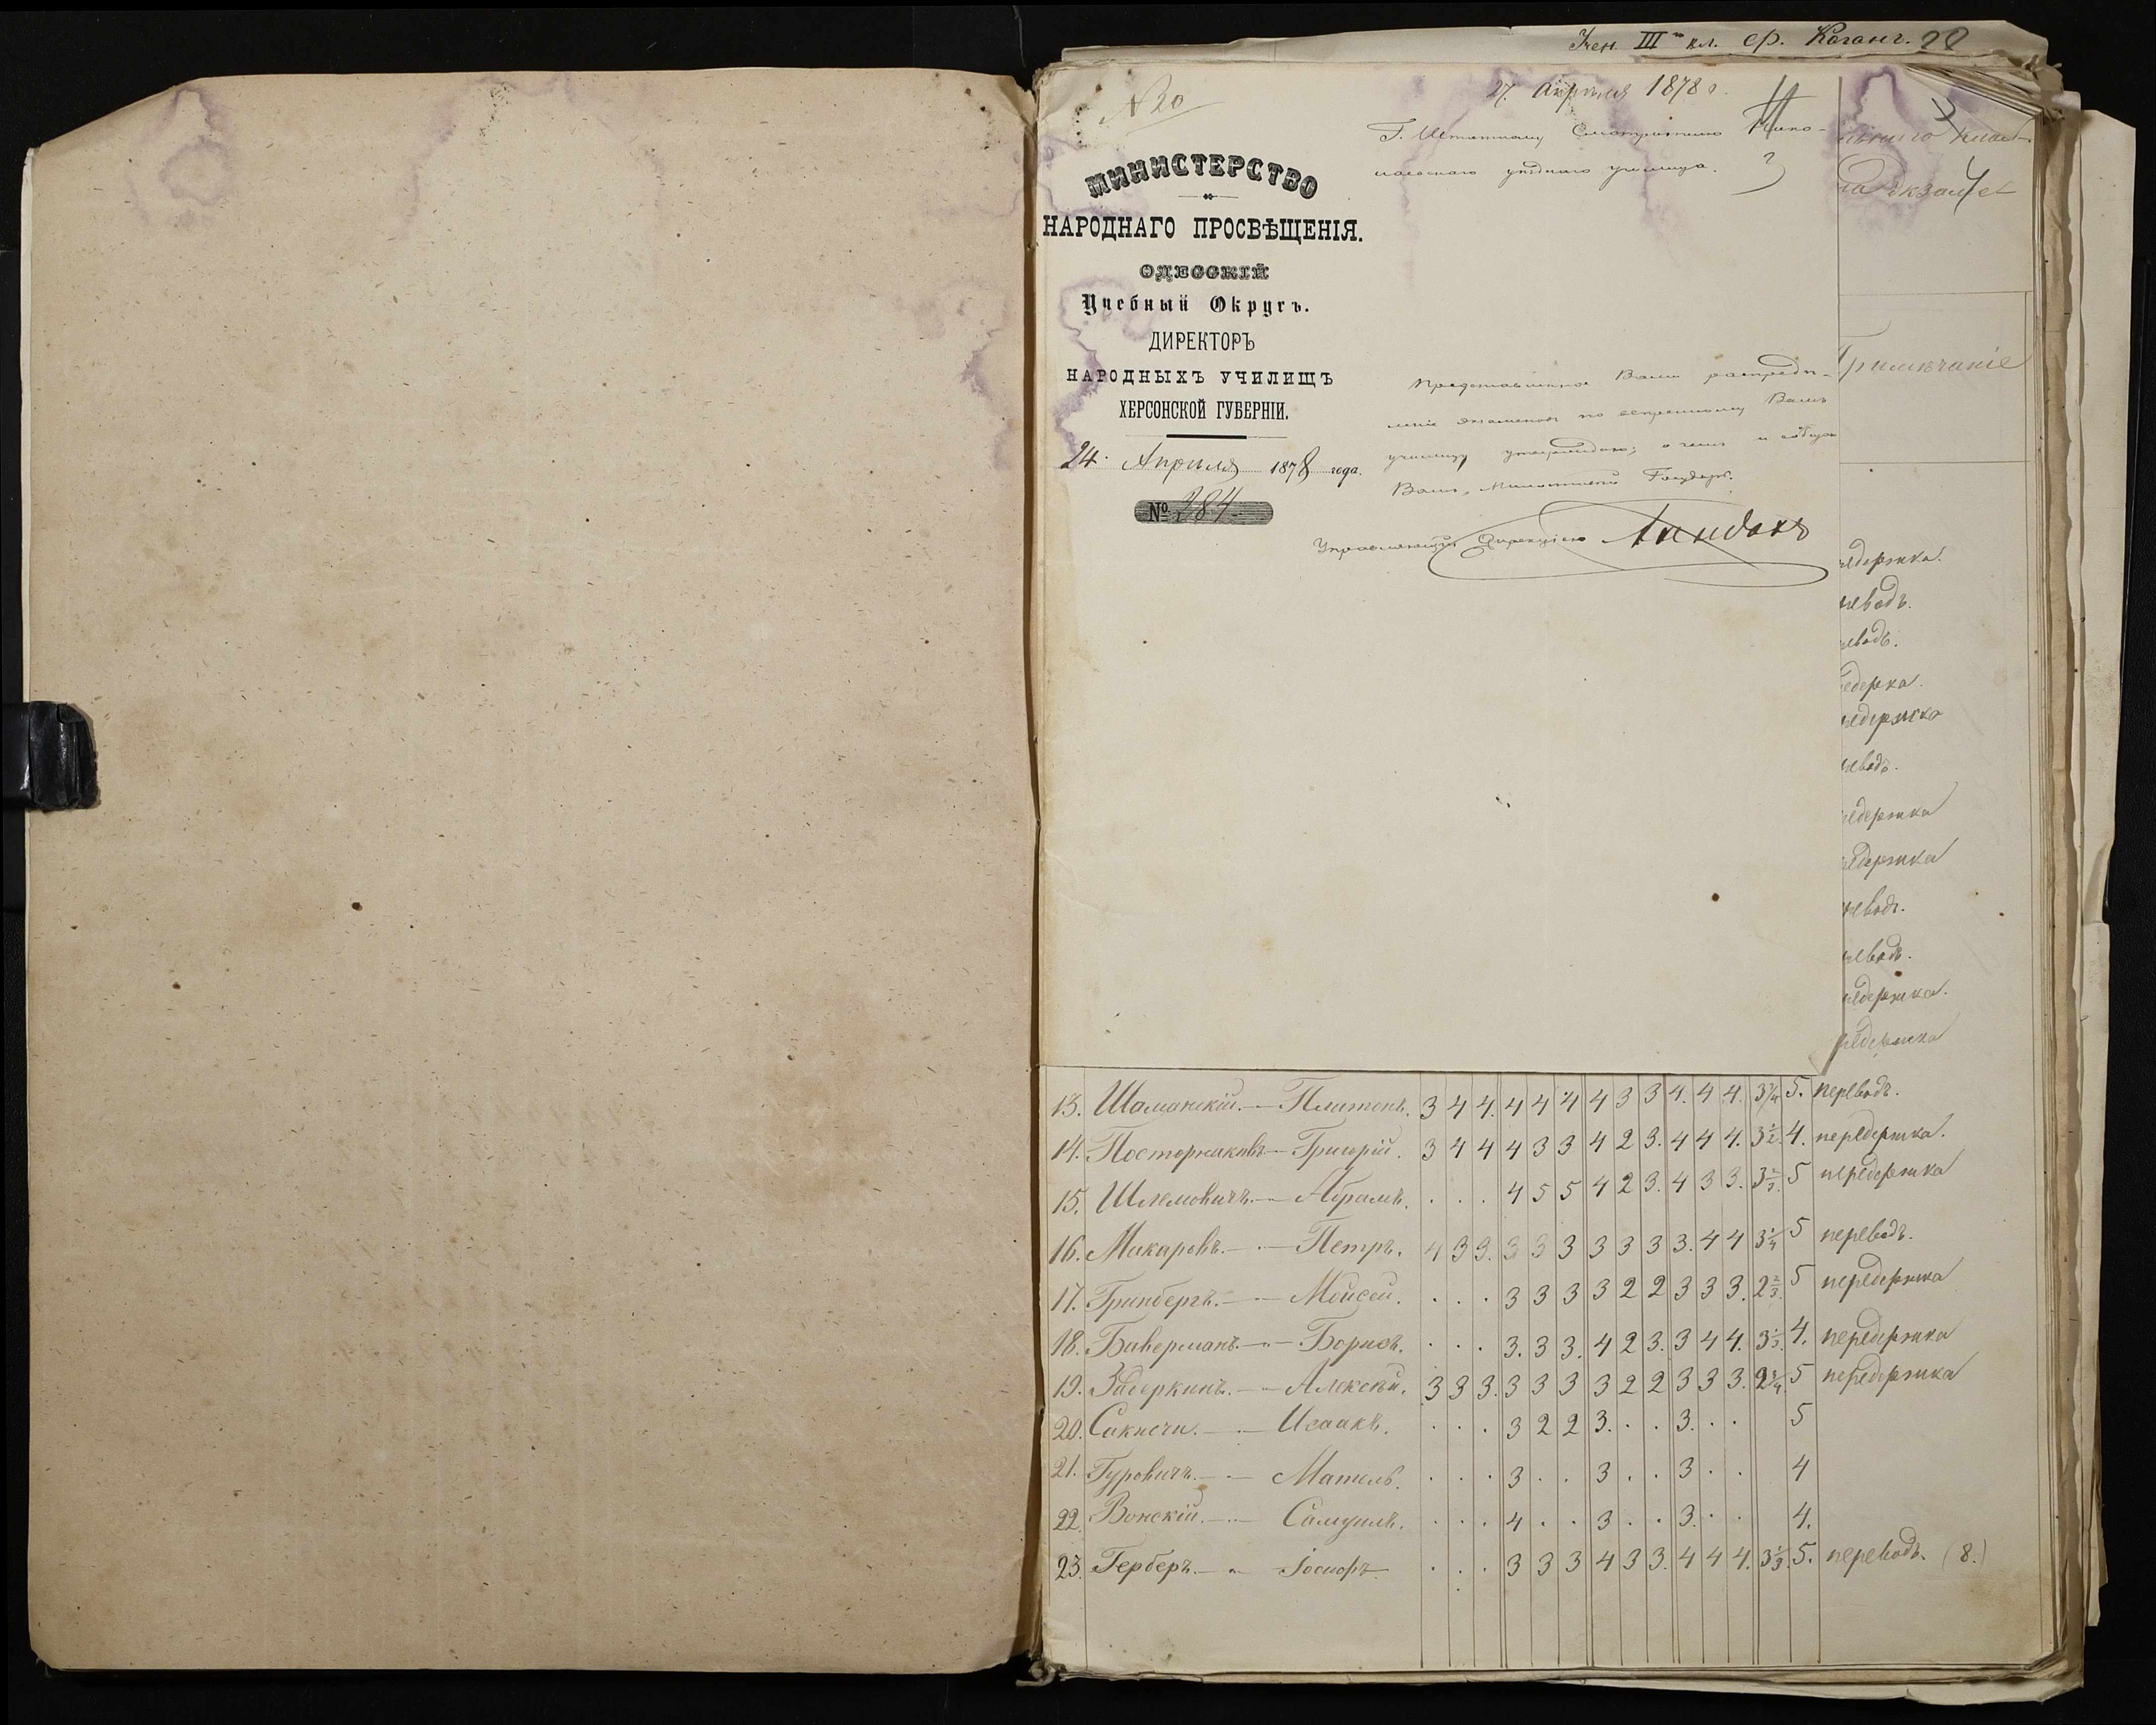 Учен. III кл. ср. Коганъ. 28
№ 20
27. Апрѣля 1878 г.
Г. Штатному Смотрителю Нико-
лаевскаго уѣзднаго училища. 3
МИНИСТЕРСТВО
НАРОДНАГО ПРОСВѢЩЕНІЯ.
ОДЕССКІЙ
Учебный Округъ.
ДИРЕКТОРЪ
НАРОДНЫХЪ УЧИЛИЩЪ
ХЕРСОНСКОЙ ГУБЕРНІИ.
24. Апрѣля 1878 года.
№ 284
Представленное Вами распредѣ-
леніе экзаменовъ по ввѣренному Вамъ
училищу утверждаю; о чемъ и
Васъ, Милостивый Государь.
Управляющій Дирекціею
Примѣчаніе
редержка.
реводъ.
реводъ.
едерка.
редержка
реводъ.
редержка
редержка
реводъ.
реводъ.
редержка.
редержка
13. Шаманскій. — Платонъ. 3 4 4. 4 4 4 4 3 3 4. 4 4. 3¾ 5. переводъ.
14. Посторнаковъ — Григорій. 3 4 4 4 3 3 4 2 3. 4 4 4. 3½ 4. передержка.
15. Шлемовичъ. — Абрамъ. . . . 4 5 5 4 2 3. 4 3 3. 3⅔ 5 передержка
16. Макаровъ. — Петръ. 4 3 3. 3 3 3 3 3 3 3. 4 4 3¼ 5 переводъ.
17. Гринбергъ. — Мойсей. . . . 3 3 3 3 2 2 3 3 3. 2⅔ 5 передержка
18. Баверманъ. — Борисъ. . . . 3. 3 3. 4 2 3. 3 4 4. 3⅓ 4. передержка
19. Задеркинъ. — Алексѣй. 3 3 3. 3 3 3 3 2 2 3 3 3. 2¾ 5 передержка
20. Сакнечи. — Исаакъ. . . . 3 2 2 3. . . 3. . . 5
21. Гуровичъ. — Матель. . . . 3 . . 3 . . 3 . . 4
22. Вонскій. — Самуилъ. . . . 4 . . 3 . . 3. . . 4.
23. Герберъ. — Іосифъ . . . 3 3 3 4 3 3. 4 4 4. 3⅓ 5. переводъ. (8.)